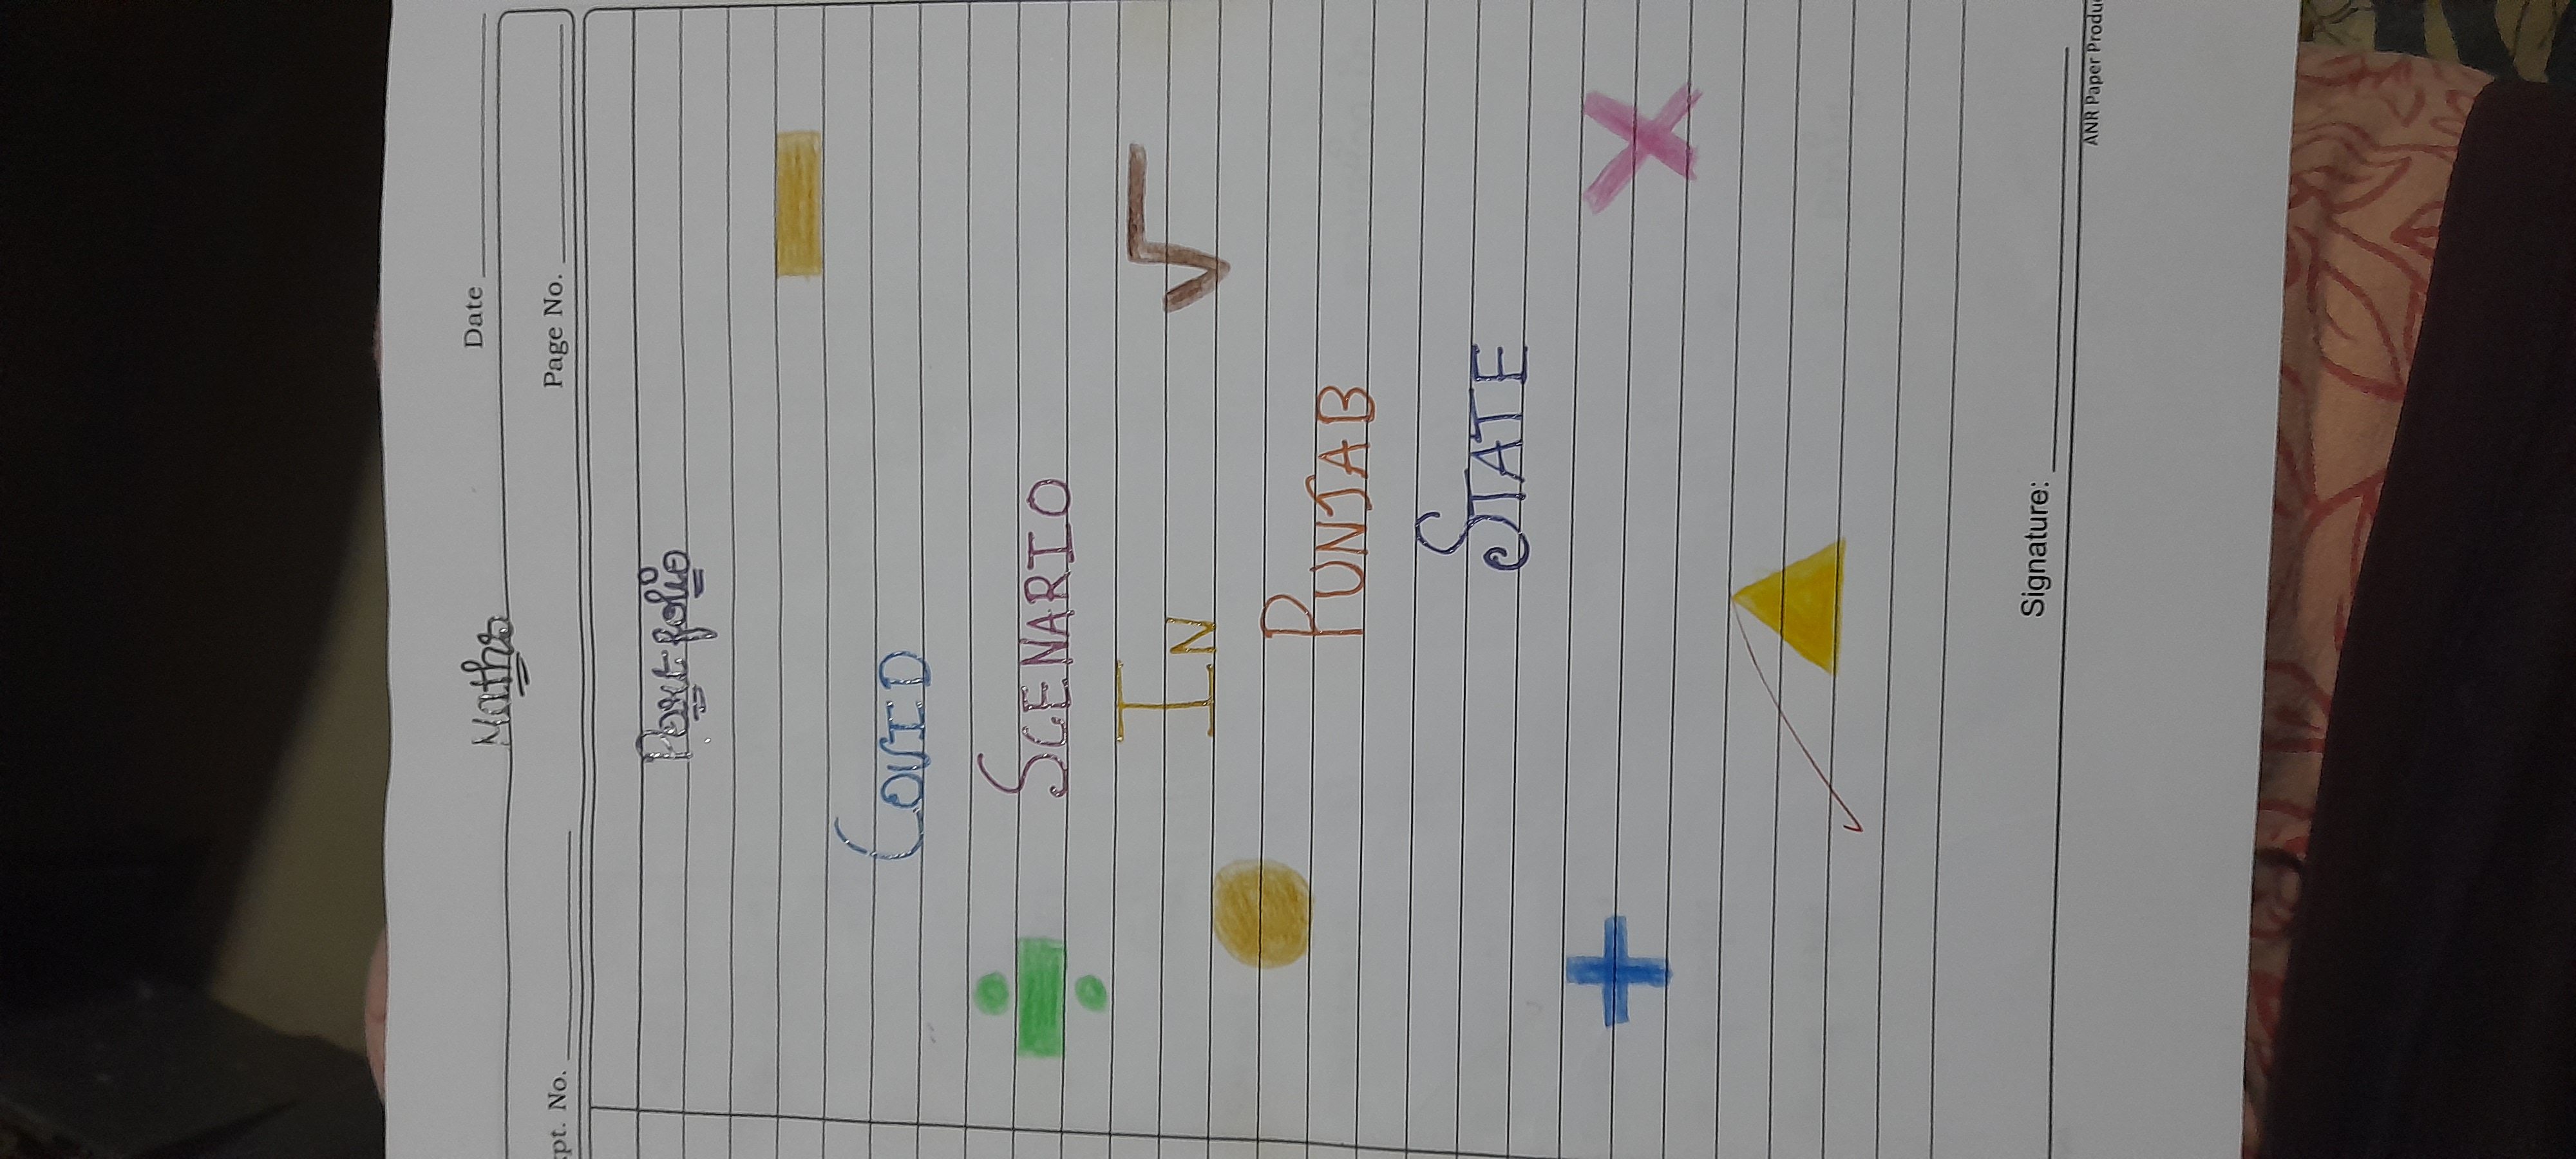 Maths
Date
Expt. No.
Page No.
Portfolio
COVID
SCENARIO
IN
PUNJAB
STATE
Signature:
ANR Paper Produ